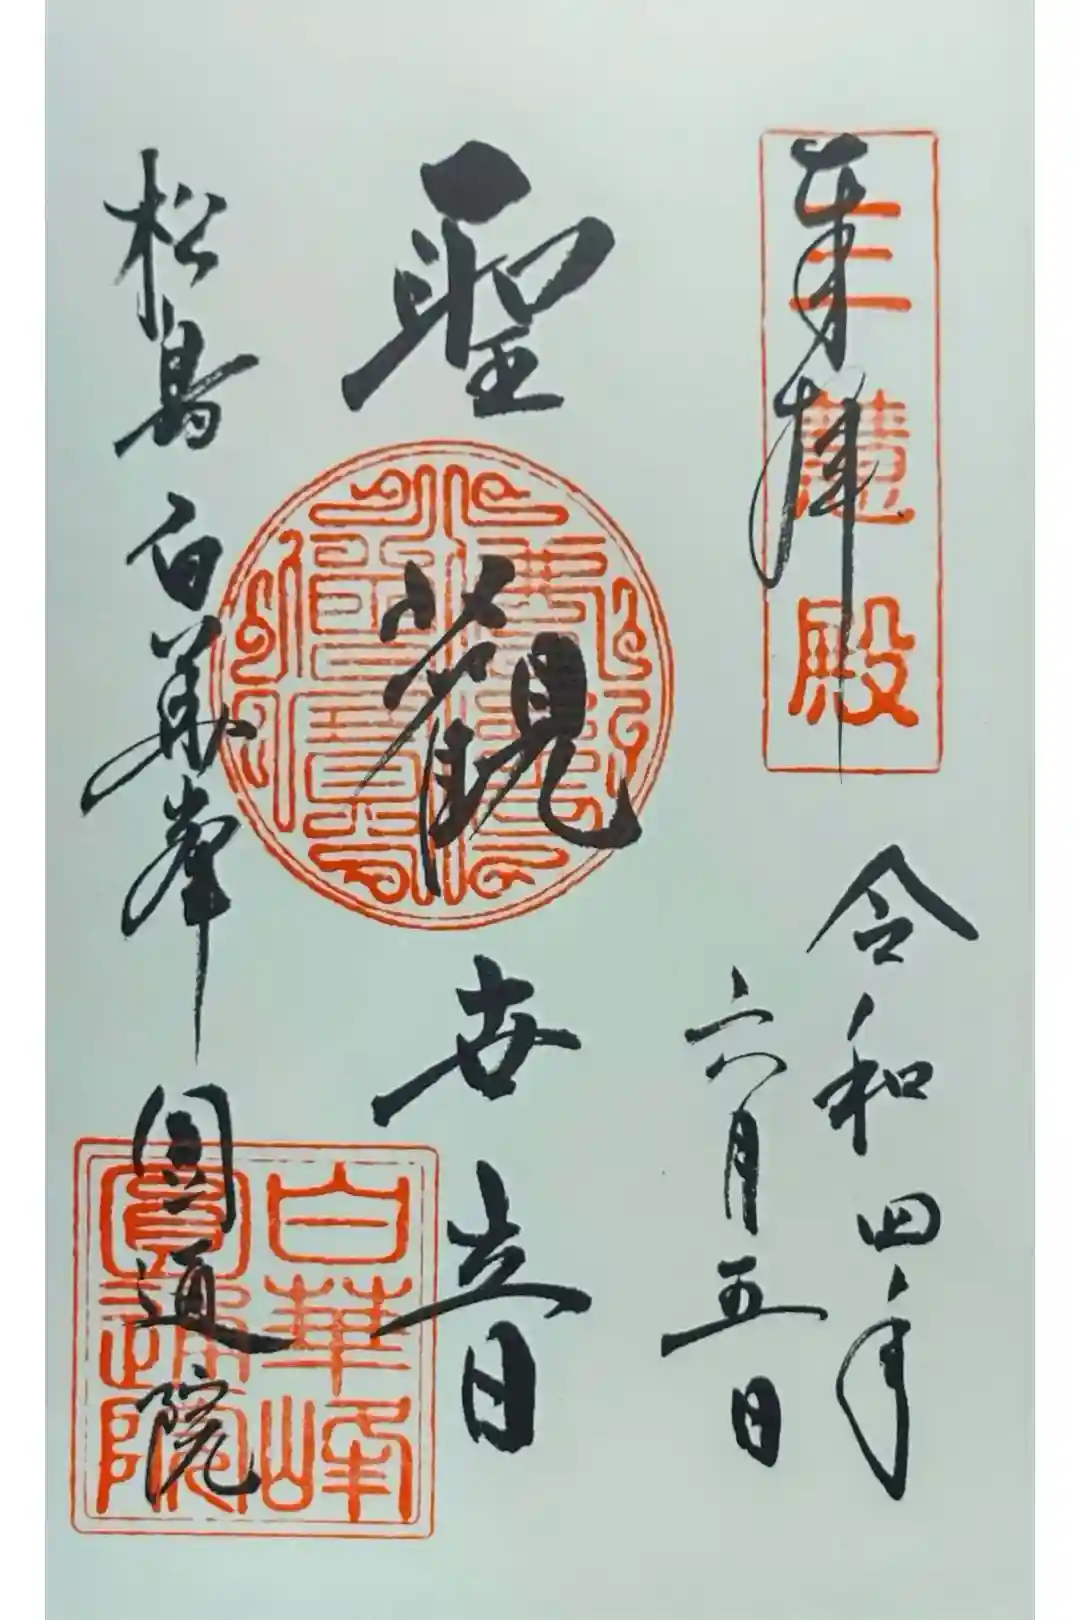 奉拝
三慧殿
令和四年
六月五日
聖觀世音
松島白華峯圓通院
白華峰
圓通院